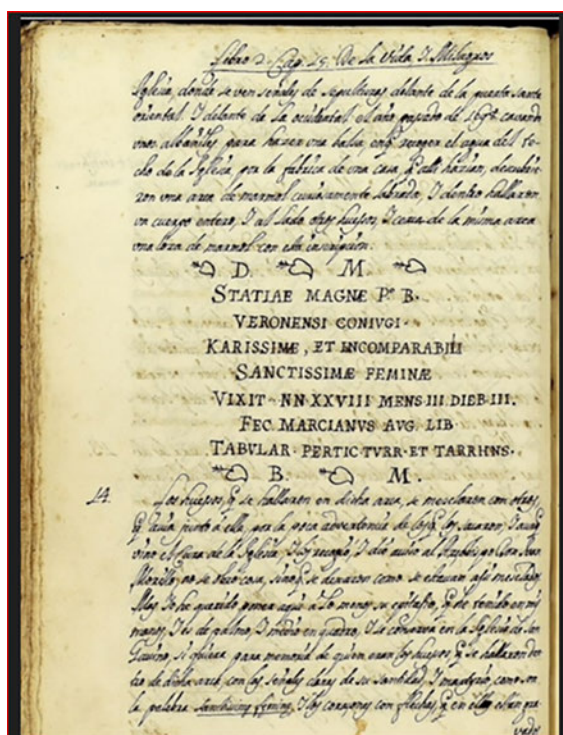 Libro 2. Cap. 25. De la Vida, I Milagros
Iglesia, donde se ven señales de sepulturas delante de la puerta
oriental. I delante de la ocidental el año pasado de cavando
unos albañiles para hazer una balsa, en q̃ recoger el agua del te-
cho de la Iglesia, por la fabrica de una casa, q̃ alli hazian, descubrie-
ron una arca de marmol curiosamente labrada, I dentro hallaron
un cuerpo entero, I al lado otros huesos, I cerca de la misma arca
una loza de marmol con esta inscripcion:
D. M.
STATIAE MAGNE P. B.
VERONENSI CONIVGI.
KARISSIMÆ, ET INCOMPARABILI
SANCTISSIMÆ FEMINÆ
VIXIT NN XXVIII MENS III DIEB III.
FEC MARCIANVS AVG LIB
TABVLAR PERTIC TVRR ET TARRHNS.
B. M.
14. Los huesos, q̃ se hallaron en dicha arca, se mezclaron con otros,
q̃ avia junto à ella, por la poca advertencia de los q̃ los sacaron, I aunq̃
vino el Cura de la Iglesia, I los recogio, I dió aviso al Don Juan
Morillo, no se hizo cosa, sino q̃ se dexaron como se estavan assi mezclados
Mas Io he querido poner aqui à lo menos su epitafio, q̃ he tenido en mis
manos, I es de palmo, I medio en quadro, I se conserva en la Iglesia de San
Gavino, si quiera para memoria de quien eran los huesos q̃ se hallaron den
tro de dicha arca, con las señales claras de su santidad, I martyrio, como son
la palabra sanctissimæ feminæ, I los corazones con flechas, q̃ en ella estan gra
vados